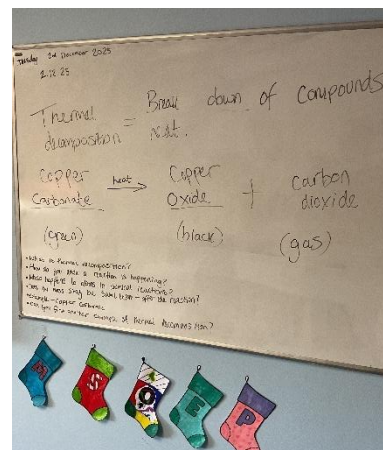 Tuesday 2nd December 2025
2.12.25
Thermal decomposition = Break down of compounds
heat.
Copper Carbonate heat → Copper Oxide + carbon dioxide
(green) (black) (gas)
• What is thermal decomposition?
• How do you know a reaction is happening?
• What happens to atoms in chemical reactions?
• Does the mass stay the same before - after the reaction?
• Example - Copper Carbonate
• Can you give another example of thermal decomposition?
M S O E P